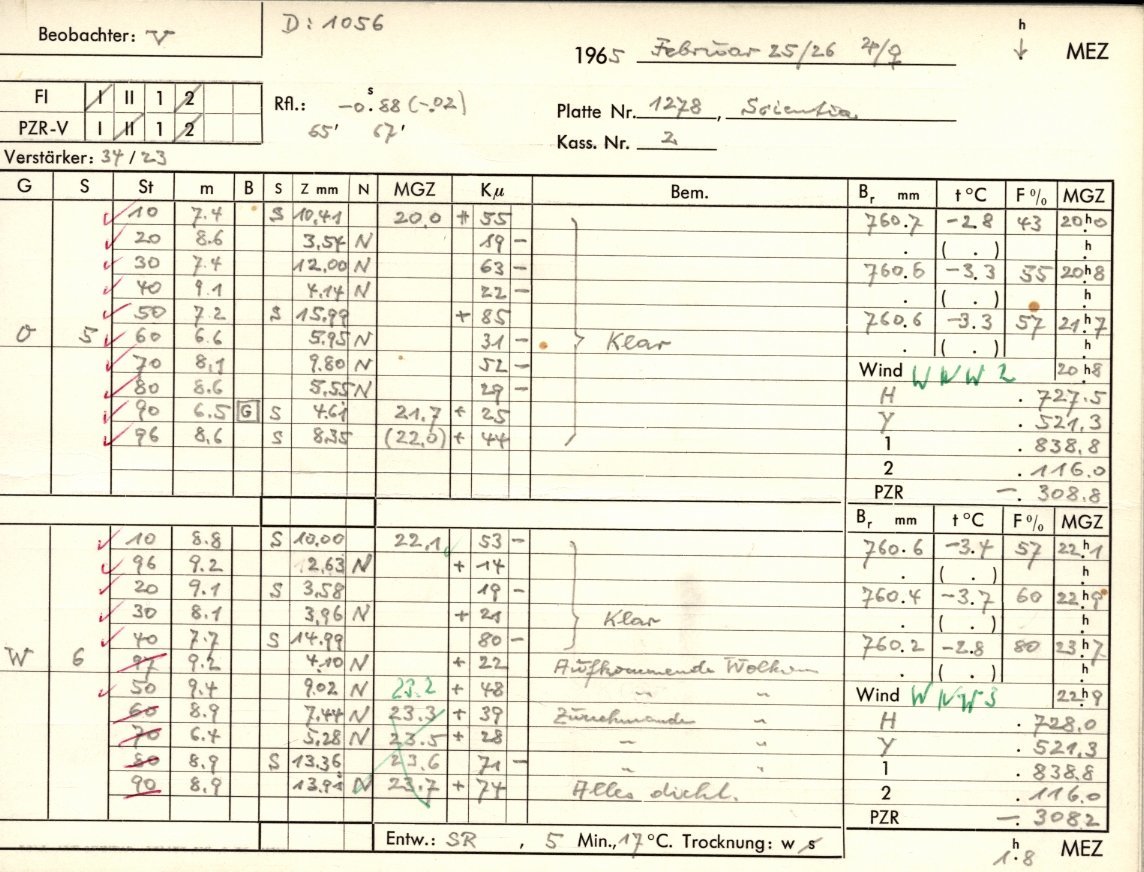 Beobachter: V
D: 1056
1965 Februar 25/26 ♃/♀
h
↓ MEZ
FI I II 1 2
PZR-V I II 1 2
Rfl.: -0.ˢ88 (-.02)
65' 67'
Platte Nr. 1278, Scientia
Kass. Nr. 2
Verstärker: 34 / 23
G S St m B S Z mm N MGZ Kμ Bem. Br mm t °C F % MGZ
10 7.4 S 10,41 20,0 + 55 760.7 -2.8 43 20ʰ0
20 8.6 3,54 N 19 - . ( . ) h
30 7.4 12,00 N 63 - 760.6 -3.3 55 20ʰ8
40 9.1 4.14 N 22 - . ( . ) h
50 7.2 S 15.99 + 85 760.6 -3.3 57 21ʰ7
O 5 60 6.6 5.95 N 31 - Klar . ( . ) h
70 8,1 9.80 N 52 - Wind WNW 2 20ʰ8
80 8.6 5,55 N 29 - H . 727.5
90 6.5 G S 4.61 21.7 + 25 Y . 521,3
96 8,6 S 8.35 (22,0) + 44 1 . 838,8
2 . 116.0
PZR -. 308.8
Br mm t °C F % MGZ
10 8.8 S 10,00 22,1 53 - 760.6 -3.4 57 22ʰ1
96 9.2 2,63 N + 14 . ( . ) h
20 9.1 S 3,58 19 - 760.4 -3.7 60 22ʰ9
30 8.1 3,96 N + 21 Klar . ( . ) h
40 7.7 S 14.99 80 - 760.2 -2.8 80 23ʰ7
W 6 97 9.2 4.10 N + 22 Aufkommende Wolken . ( . ) h
50 9.4 9.02 N 23.2 + 48 " " Wind WNW 3 22ʰ9
60 8.9 7.44 N 23.3 + 39 Zunehmende " H . 728.0
70 6.4 5,28 N 23.5 + 28 " " Y . 521,3
80 8.9 S 13.36 23.6 71 - " " 1 . 838.8
90 8.9 13.91 N 23.7 + 74 Alles dicht. 2 . 116.0
PZR -. 308.2
Entw.: SR , 5 Min., 17 °C. Trocknung: w s
1.ʰ8 MEZ